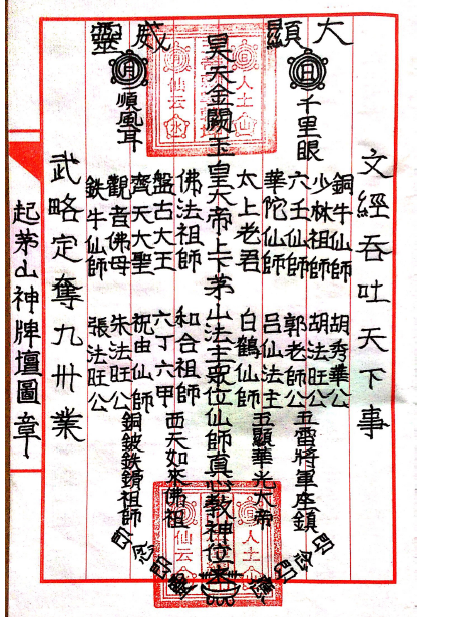 大顯威靈
文經吞吐天下事
日
千里眼
銅牛仙師
胡秀華公
少林祖師
胡法旺公
六壬仙師
郭老師公
五雷將軍座鎮
華陀仙師
呂仙法主
五顯華光大帝
太上老君
白鶴仙師
昊天金闕玉皇大帝上下茅山法主眾位仙師真心教神位來
佛法祖師
和合祖師
西天如來佛祖
盤古大王
六丁六甲
齊天大聖
祝由仙師
銅鈸鉄鎖祖師
月
順風耳
觀音佛母
朱法旺公
鉄牛仙師
張法旺公
武略定奪九卅業
起茅山神牌壇圖章